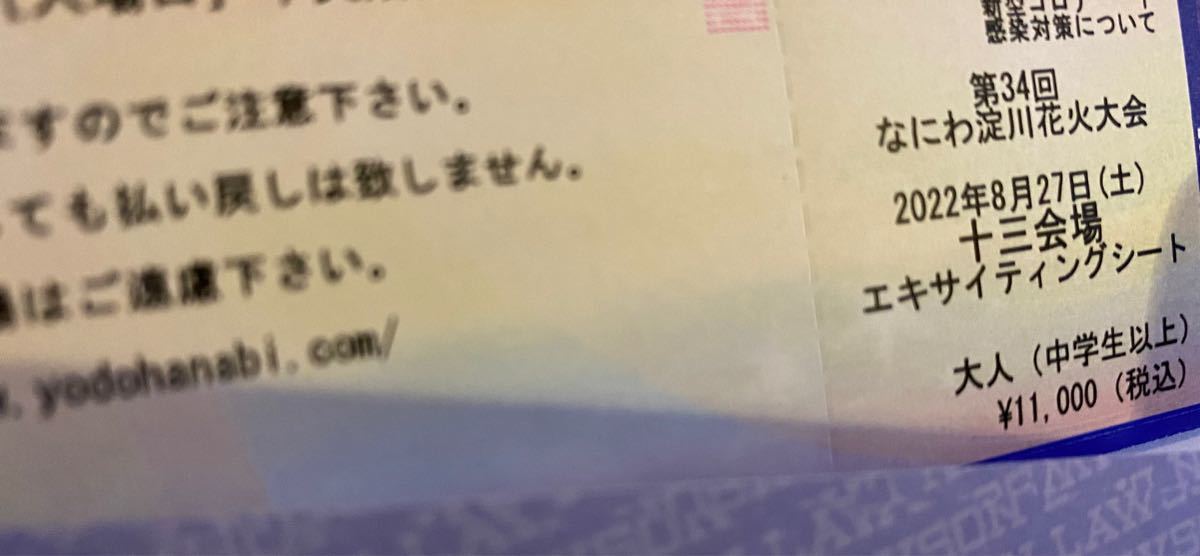 ますのでご注意下さい。
ても払い戻しは致しません。
はご遠慮下さい。
yodohanabi.com/
感染対策について
第34回
なにわ淀川花火大会
2022年8月27日(土)
十三会場
エキサイティングシート
大人(中学生以上)
¥11,000(税込)